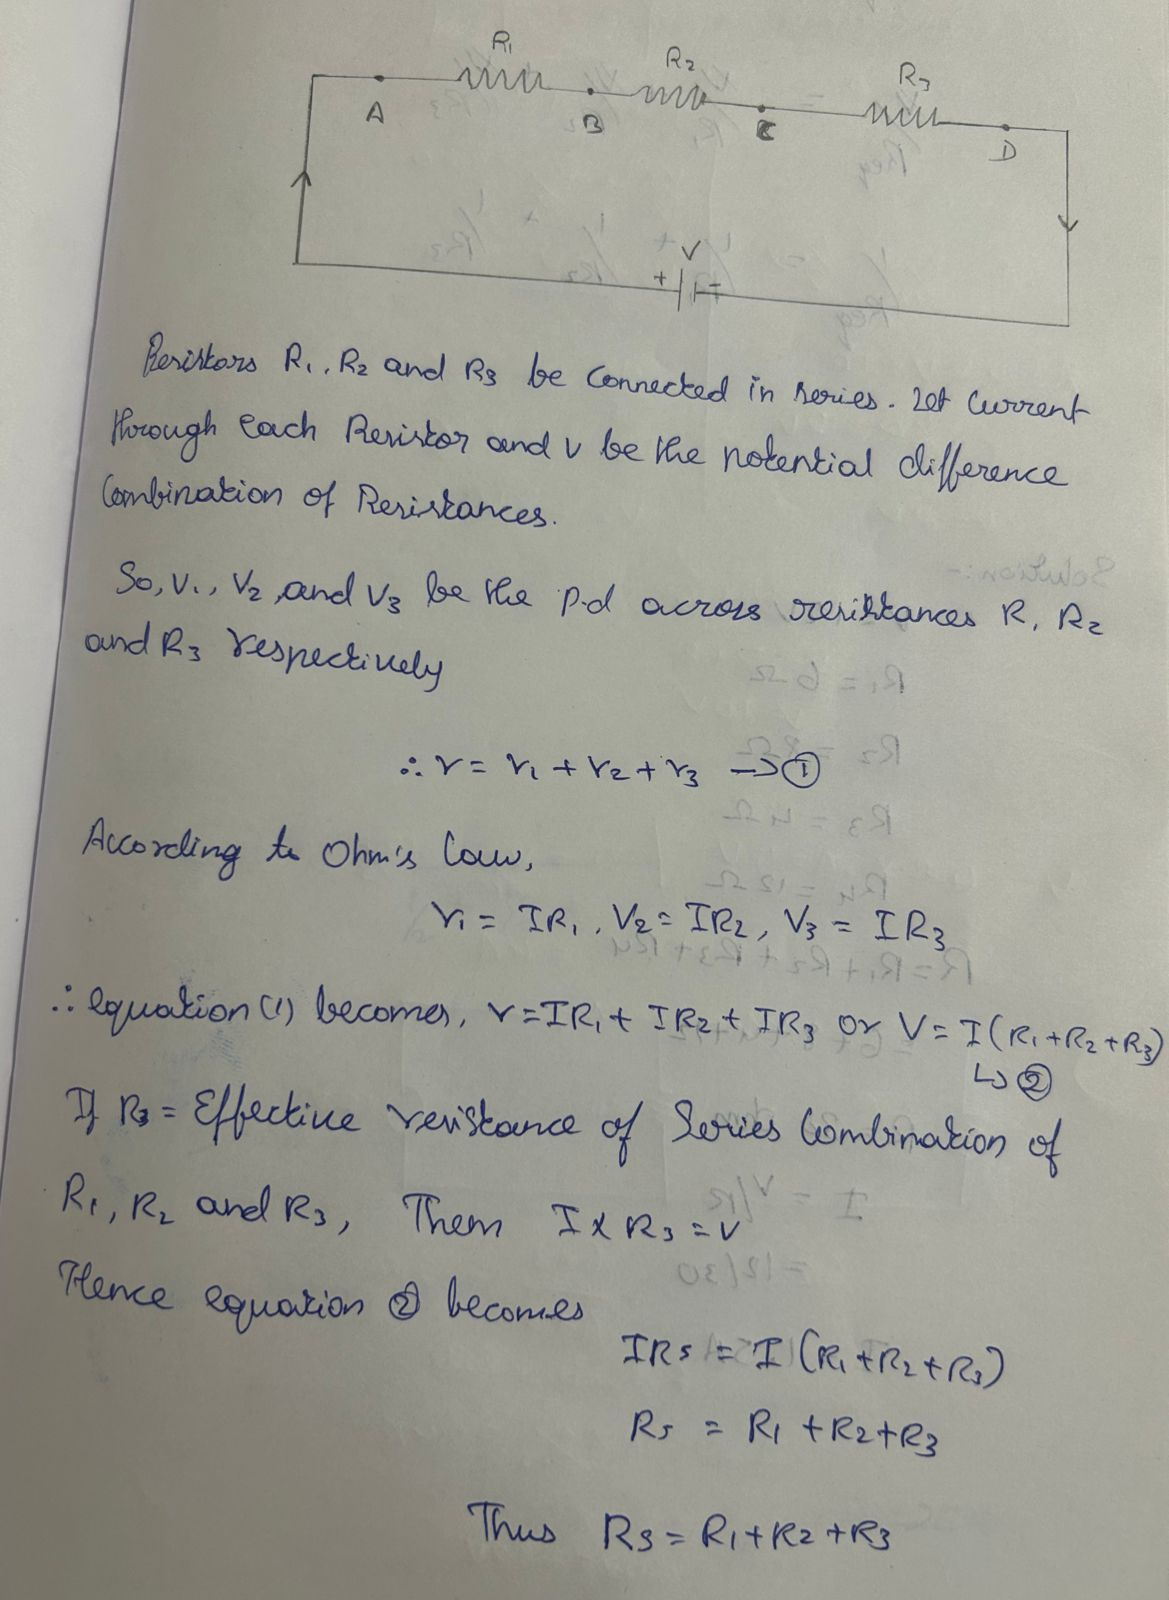 R₁ R₂ R₃
A B C D
V
+ -
Resistors R₁, R₂ and R₃ be connected in series. Let current
through each Resistor and v be the potential difference
Combination of Resistances.
So, V₁, V₂, and V₃ be the p.d across resistances R₁ R₂
and R₃ respectively
∴ V = V₁ + V₂ + V₃ → ①
According to Ohm's law,
V₁ = IR₁, V₂ = IR₂, V₃ = IR₃
∴ equation (1) becomes, V = IR₁ + IR₂ + IR₃ or V = I(R₁ + R₂ + R₃)
↳ ②
If R₃ = Effective resistance of Series Combination of
R₁, R₂ and R₃, Then I × R₃ = V
Hence equation ② becomes
IRs = I (R₁ + R₂ + R₃)
Rs = R₁ + R₂ + R₃
Thus R₃ = R₁ + R₂ + R₃